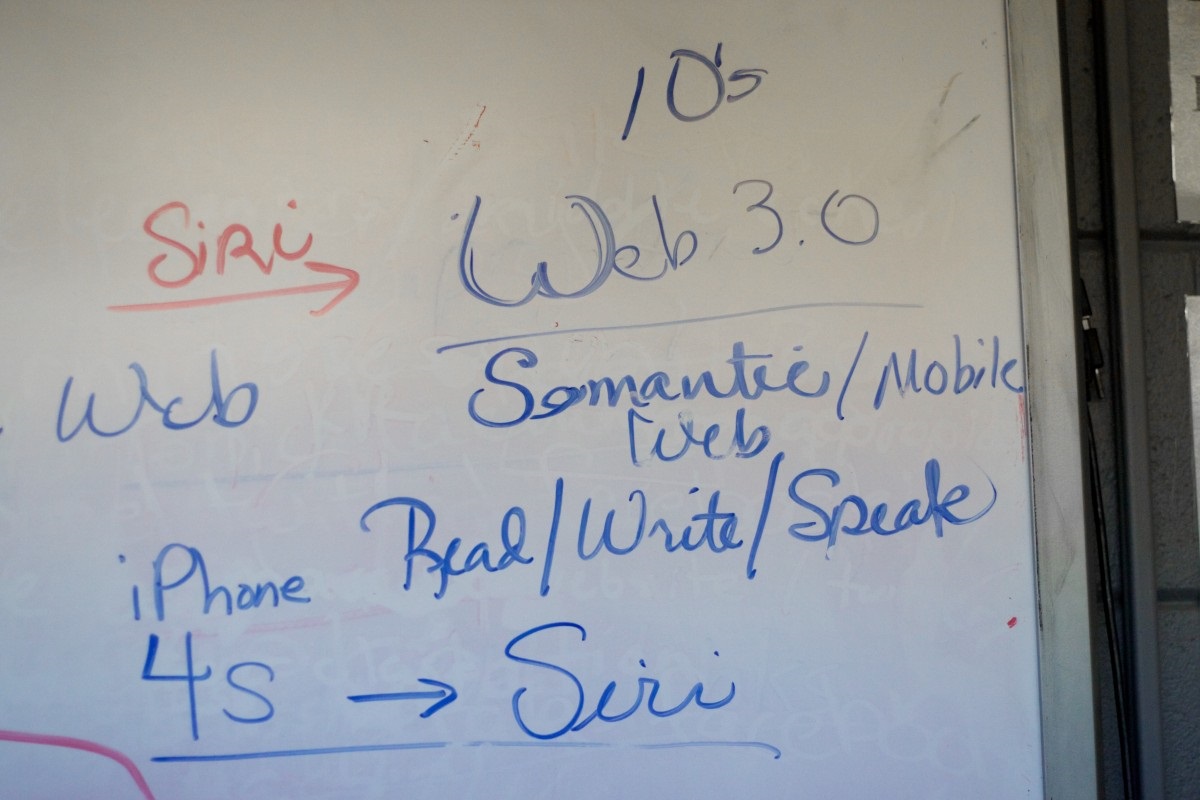 10's
SiRi
Web 3.0
Web
Semantic/Mobile
Web
Read/Write/Speak
iPhone
4s → Siri